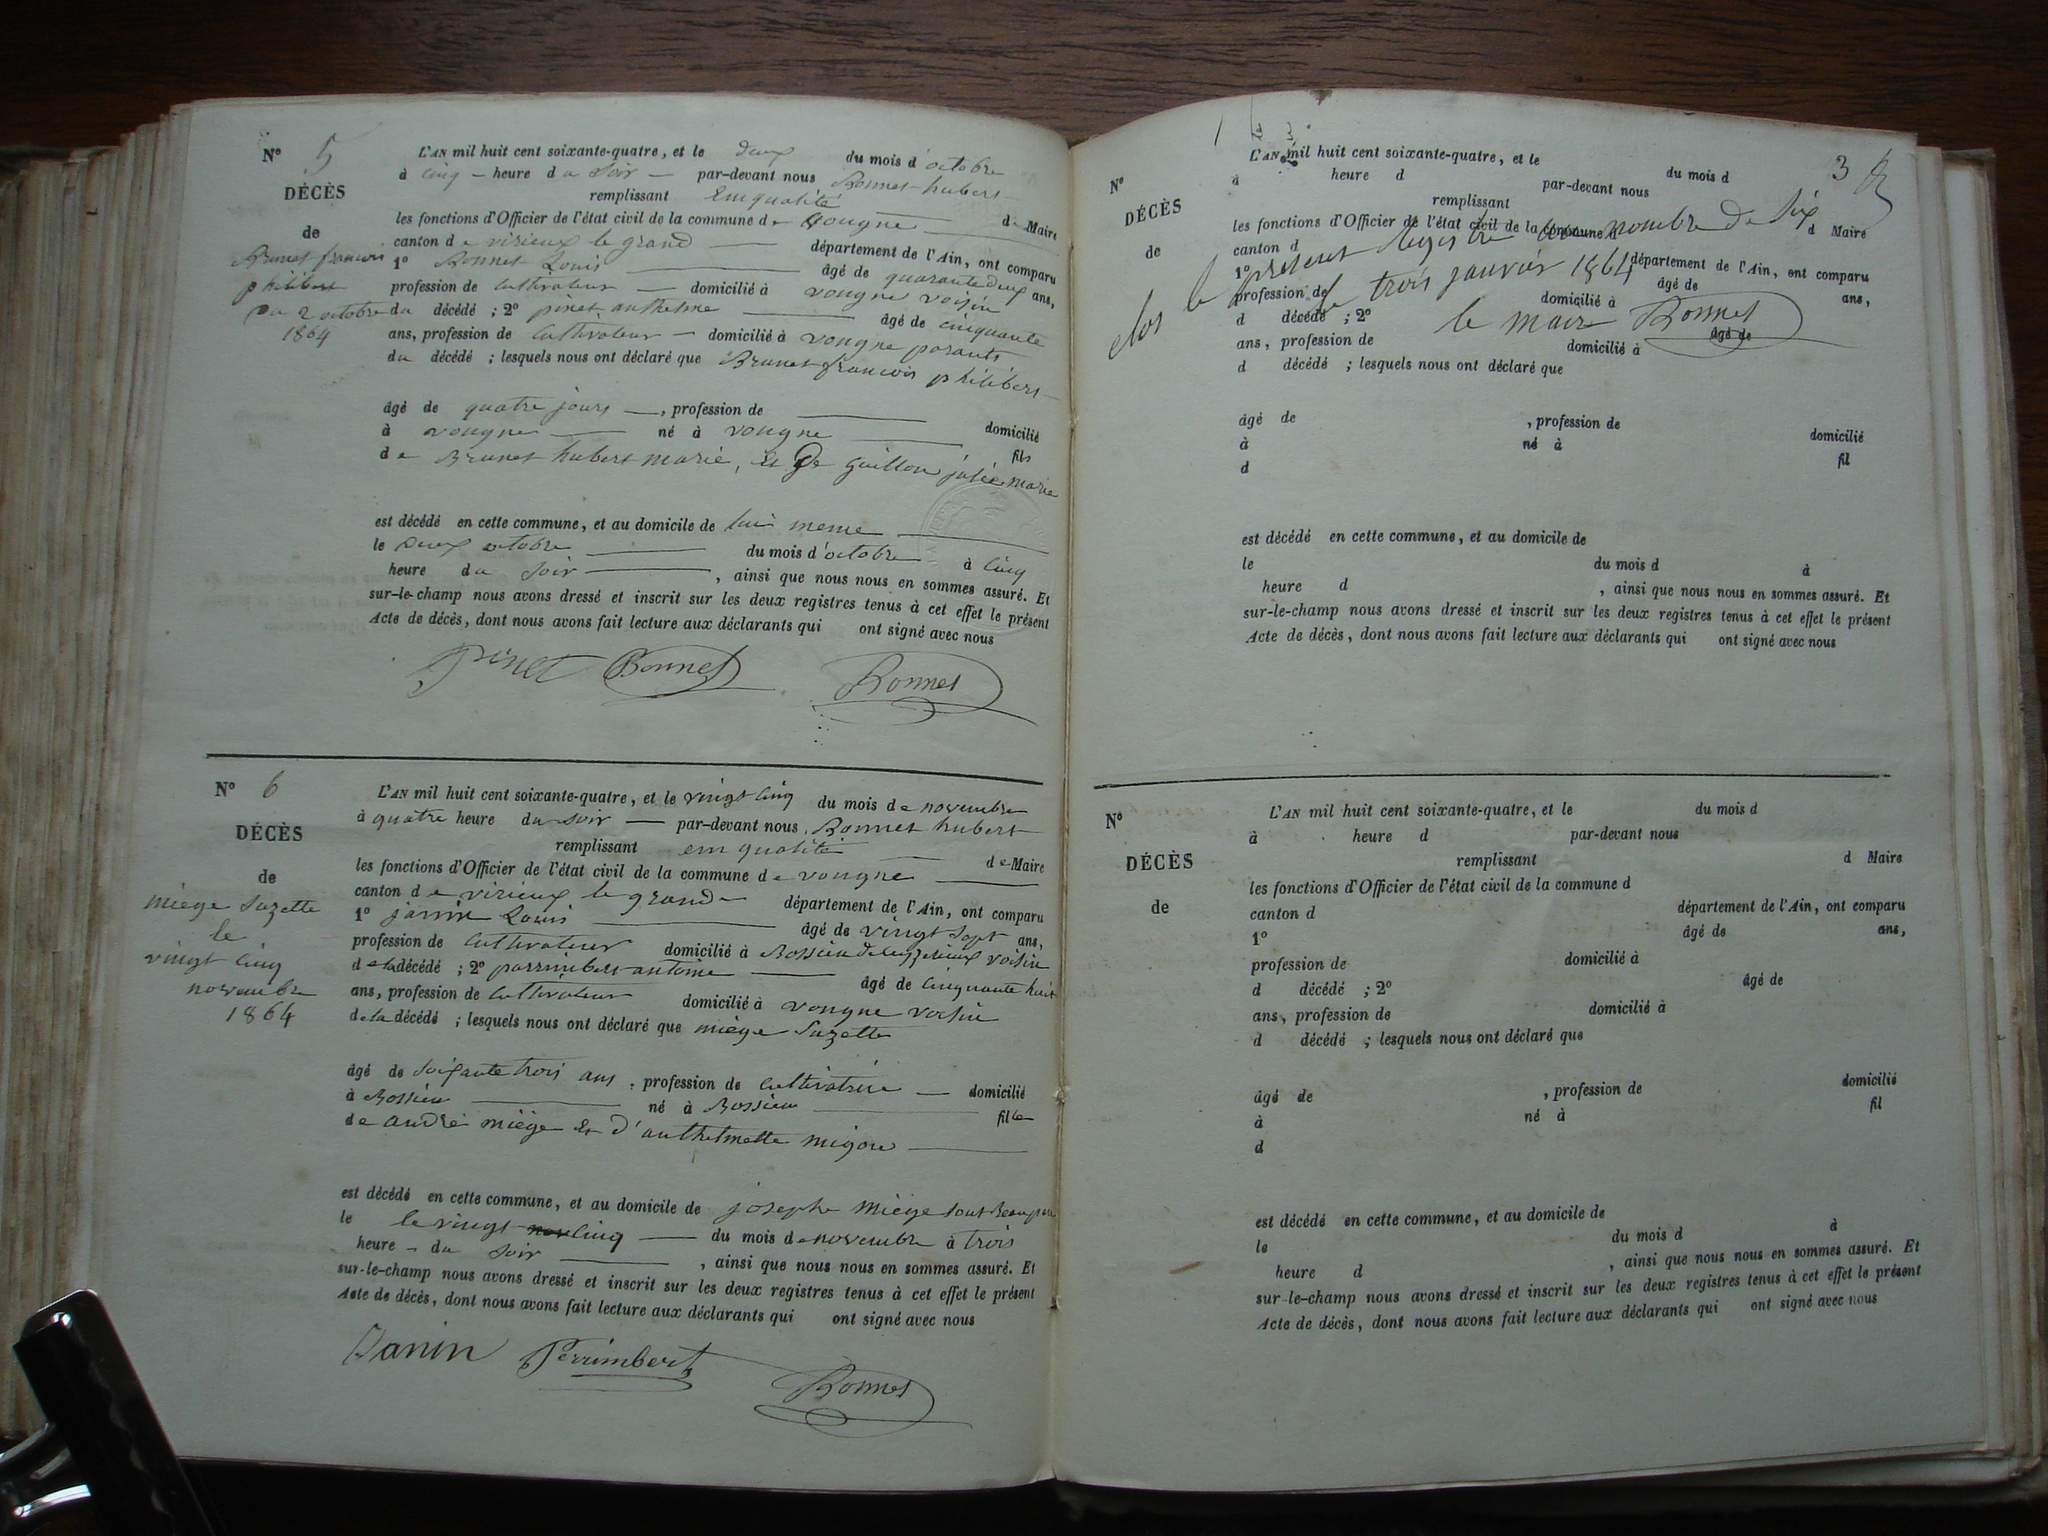 N° 5
DÉCÈS
de
Brunet francois
philibert
Du 2 octobre
1864
L'AN mil huit cent soixante-quatre, et le deux du mois d'octobre
à cinq heure du soir par-devant nous Bonnet hubert
remplissant Em qualité de Maire
les fonctions d'Officier de l'état civil de la commune de vongne
canton de virieux le grand département de l'Ain, ont comparu
1° Bonnet Louis âgé de quarante deux ans,
profession de cultivateur domicilié à vongne voisin
du décédé ; 2° pinet anthelme âgé de cinquante
ans, profession de cultivateur domicilié à vongne parants
du décédé ; lesquels nous ont déclaré que Brunet francois philibert
âgé de quatre jours, profession de
domicilié
à vongne né à vongne fils
de Brunet hubert marie, et De guillon julie marie
est décédé en cette commune, et au domicile de lui meme
le deux octobre du mois d'octobre à cinq
heure du soir, ainsi que nous nous en sommes assuré. Et
sur-le-champ nous avons dressé et inscrit sur les deux registres tenus à cet effet le présent
Acte de décès, dont nous avons fait lecture aux déclarants qui ont signé avec nous
pinet Bonnet Bonnet
N° 6
DÉCÈS
de
miège Suzette
le
vingt cinq
novembre
1864
L'AN mil huit cent soixante-quatre, et le vingt cinq du mois de novembre
à quatre heure du soir par-devant nous Bonnet hubert
remplissant em qualité de Maire
les fonctions d'Officier de l'état civil de la commune de vongne
canton de virieux le grand département de l'Ain, ont comparu
1° janin Louis âgé de vingt sept ans,
profession de cultivateur domicilié à Rossieu voisin
de la décédé ; 2° parrimbert antoine âgé de cinquante huit
ans, profession de cultivateur domicilié à vongne voisin
de la décédé ; lesquels nous ont déclaré que miège Suzette
âgé de soixante trois ans, profession de cultivatrice domicilié
à Rossieu né à Rossieu fille
de andré miège et d'anthelmette migon
est décédé en cette commune, et au domicile de josephe miège
le le vingt cinq du mois de novembre à trois
heure du soir, ainsi que nous nous en sommes assuré. Et
sur-le-champ nous avons dressé et inscrit sur les deux registres tenus à cet effet le présent
Acte de décès, dont nous avons fait lecture aux déclarants qui ont signé avec nous
Janin Perrimbert
Bonnet
3
N°
DÉCÈS
de
L'AN mil huit cent soixante-quatre, et le du mois d
à heure d par-devant nous
remplissant d Maire
les fonctions d'Officier de l'état civil de la commune d
canton d département de l'Ain, ont comparu
1° âgé de ans,
profession de domicilié à
d décédé ; 2° âgé de
ans, profession de domicilié à
d décédé ; lesquels nous ont déclaré que
clos le présent registre au nombre de six
le trois janvier 1864
le maire Bonnet
âgé de , profession de domicilié
à né à fil
d
est décédé en cette commune, et au domicile de
le du mois d à
heure d , ainsi que nous nous en sommes assuré. Et
sur-le-champ nous avons dressé et inscrit sur les deux registres tenus à cet effet le présent
Acte de décès, dont nous avons fait lecture aux déclarants qui ont signé avec nous
N°
DÉCÈS
de
L'AN mil huit cent soixante-quatre, et le du mois d
à heure d par-devant nous
remplissant d Maire
les fonctions d'Officier de l'état civil de la commune d
canton d département de l'Ain, ont comparu
1° âgé de ans,
profession de domicilié à
d décédé ; 2° âgé de
ans, profession de domicilié à
d décédé ; lesquels nous ont déclaré que
âgé de , profession de domicilié
à né à fil
d
est décédé en cette commune, et au domicile de
le du mois d à
heure d , ainsi que nous nous en sommes assuré. Et
sur-le-champ nous avons dressé et inscrit sur les deux registres tenus à cet effet le présent
Acte de décès, dont nous avons fait lecture aux déclarants qui ont signé avec nous